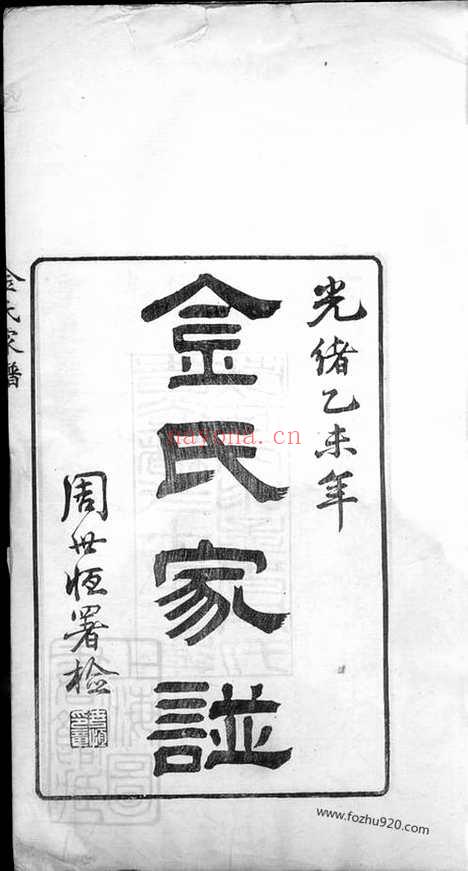 光緒乙未年
金氏家諩
周世恆署檢
金氏家譜
nayona.cn
www.fozhu920.com